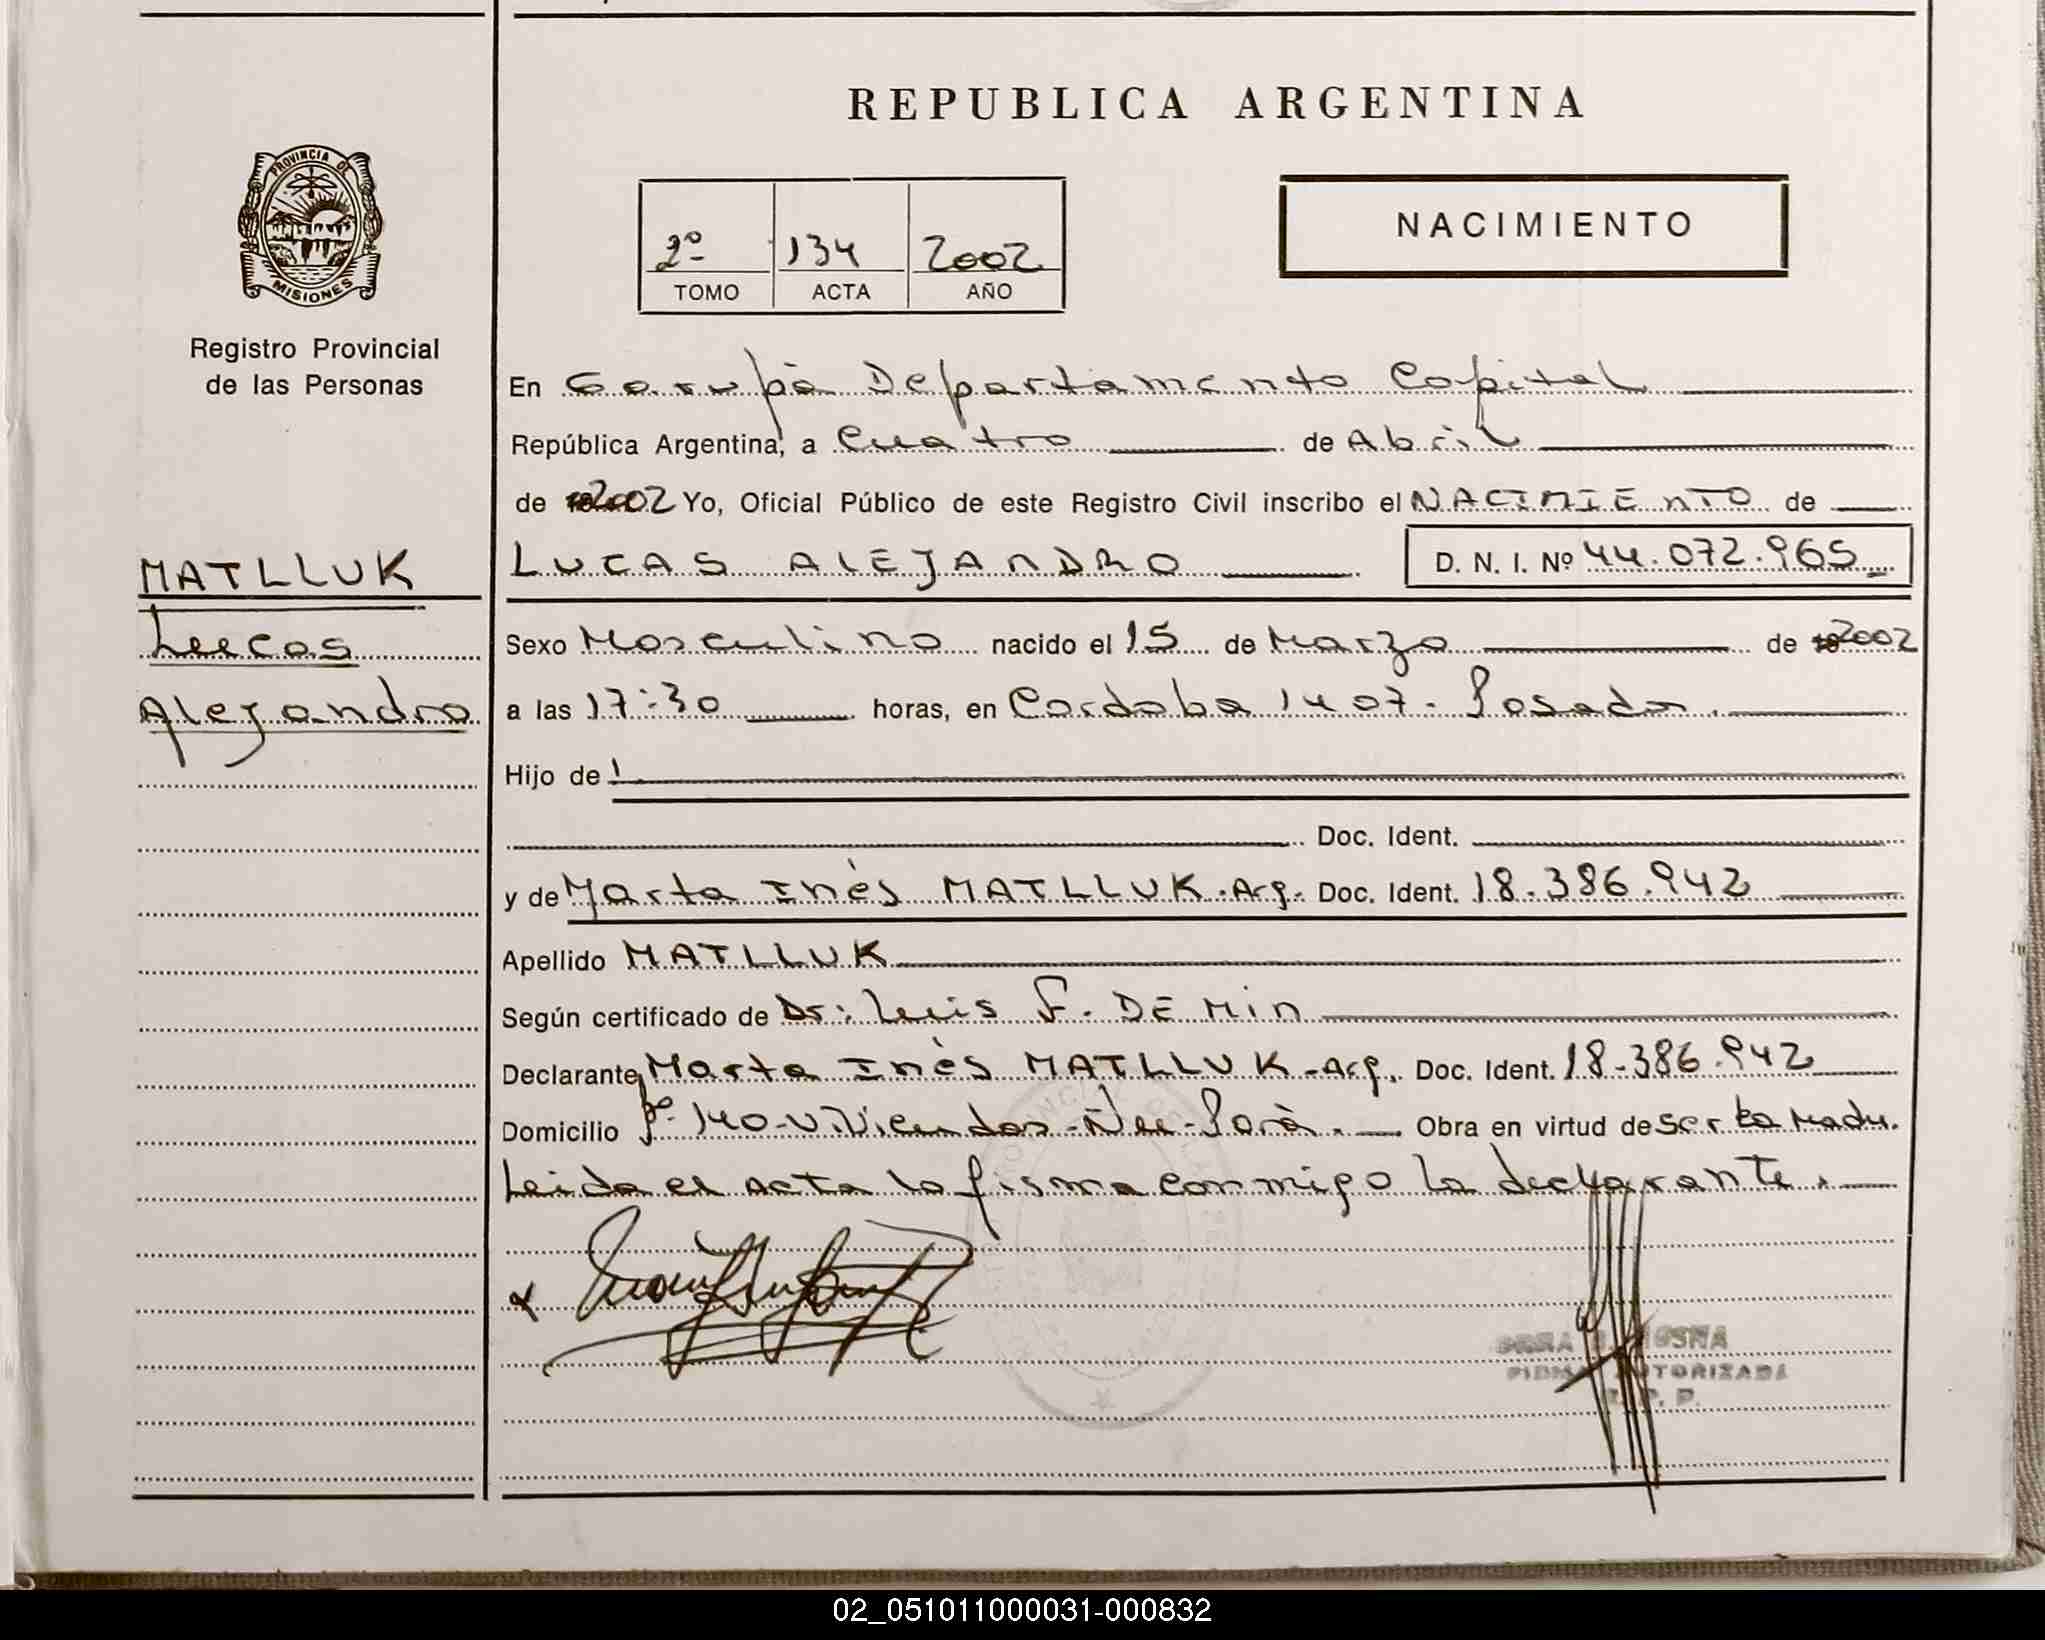 REPUBLICA ARGENTINA
PROVINCIA DE
MISIONES
Registro Provincial
de las Personas
2º 134 2002
TOMO ACTA AÑO
NACIMIENTO
En Garupà Departamento Capital
República Argentina, a Cuatro de Abril
de 2002 Yo, Oficial Público de este Registro Civil inscribo el NACIMIENTO de
MATLLUK
Lucas
Alejandro
LUCAS ALEJANDRO D. N. I. Nº 44.072.965
Sexo Masculino nacido el 15 de Marzo de 2002
a las 17:30 horas, en Cordoba 1407- Posadas.
Hijo de
Doc. Ident.
y de Marta Inès MATLLUK-Arg. Doc. Ident. 18.386.942
Apellido MATLLUK
Según certificado de Dr: Luis F. DE MIN
Declarante Marta Inès MATLLUK-Arg. Doc. Ident. 18.386.942
Domicilio 140-Viviendas-Ñu-Porà. Obra en virtud de ser la Madre.
Leida el acta la firma conmigo la declarante.
FIRMA AUTORIZADA
02_051011000031-000832